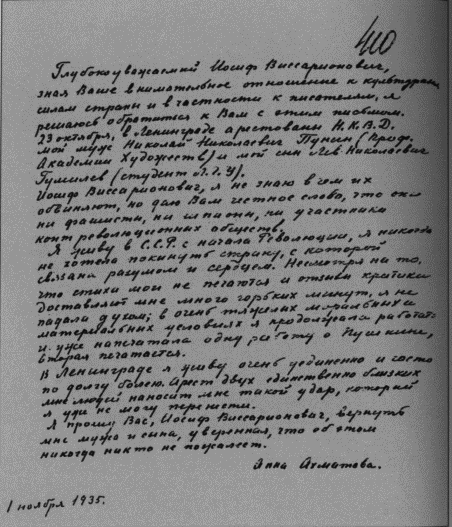 410
Глубокоуважаемый Иосиф Виссарионович,
зная Ваше внимательное отношение к культурным
силам страны и в частности к писателям, я
решаюсь обратиться к Вам с этим письмом.
23 октября, в Ленинграде арестованы Н.К.В.Д.
мой муж Николай Николаевич Пунин (проф.
Академии Художеств) и мой сын Лев Николаевич
Гумилев (студент Л.Г.У).
Иосиф Виссарионович, я не знаю в чем их
обвиняют, но даю Вам честное слово, что они
ни фашисты, ни шпионы, ни участники
контрреволюционных обществ.
Я живу в С.С.Р. с начала Революции, я никогда
не хотела покинуть страну, с которой
связана разумом и сердцем. Несмотря на то,
что стихи мои не печатаются и отзывы критики
доставляют мне много горьких минут, я не
падала духом; в очень тяжелых моральных и
материальных условиях я продолжала работать
и уже напечатала одну работу о Пушкине,
вторая печатается.
В Ленинграде я живу очень уединенно и часто
по долгу болею. Арест двух единственно близких
мне людей наносит мне такой удар, который
я уже не могу перенести.
Я прошу Вас, Иосиф Виссарионович, вернуть
мне мужа и сына, уверенная, что об этом
никогда никто не пожалеет.
Анна Ахматова.
1 ноября 1935.